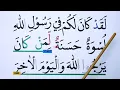 لَقَدْ كَانَ لَكُمْ فِي رَسُولِ اللهِ
أُسْوَةٌ حَسَنَةٌ لِّمَنْ كَانَ
اللهَ وَالْيَوْمَ الْاٰخِرَ